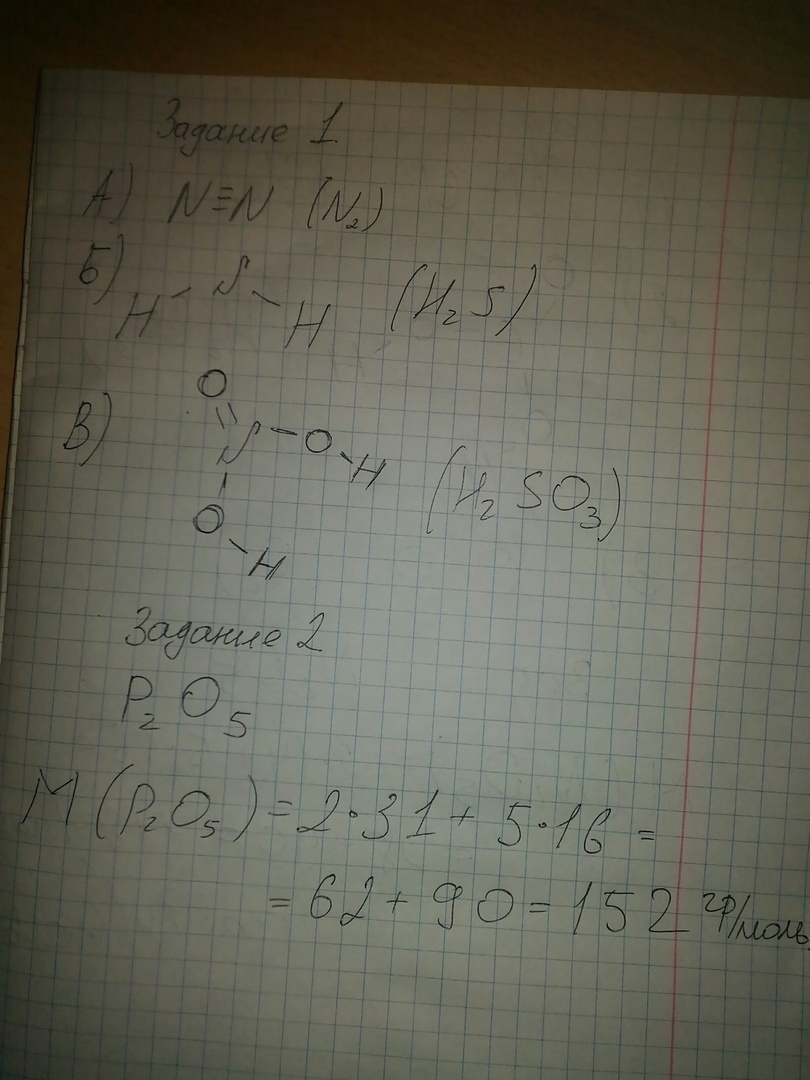 Задание 1.
А) N≡N (N₂)
Б) H - S - H (H₂S)
В) O = S - O - H (H₂SO₃)
O - H
Задание 2
P₂O₅
M(P₂O₅) = 2·31 + 5·16 =
= 62 + 90 = 152 гр/моль.